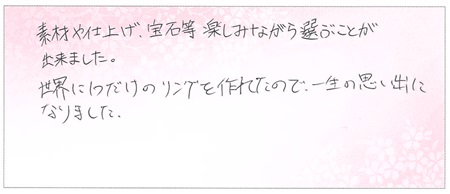 素材や仕上げ、宝石等 楽しみながら選ぶことが
出来ました。
世界に1つだけのリングを作れたので、一生の思い出に
なりました。